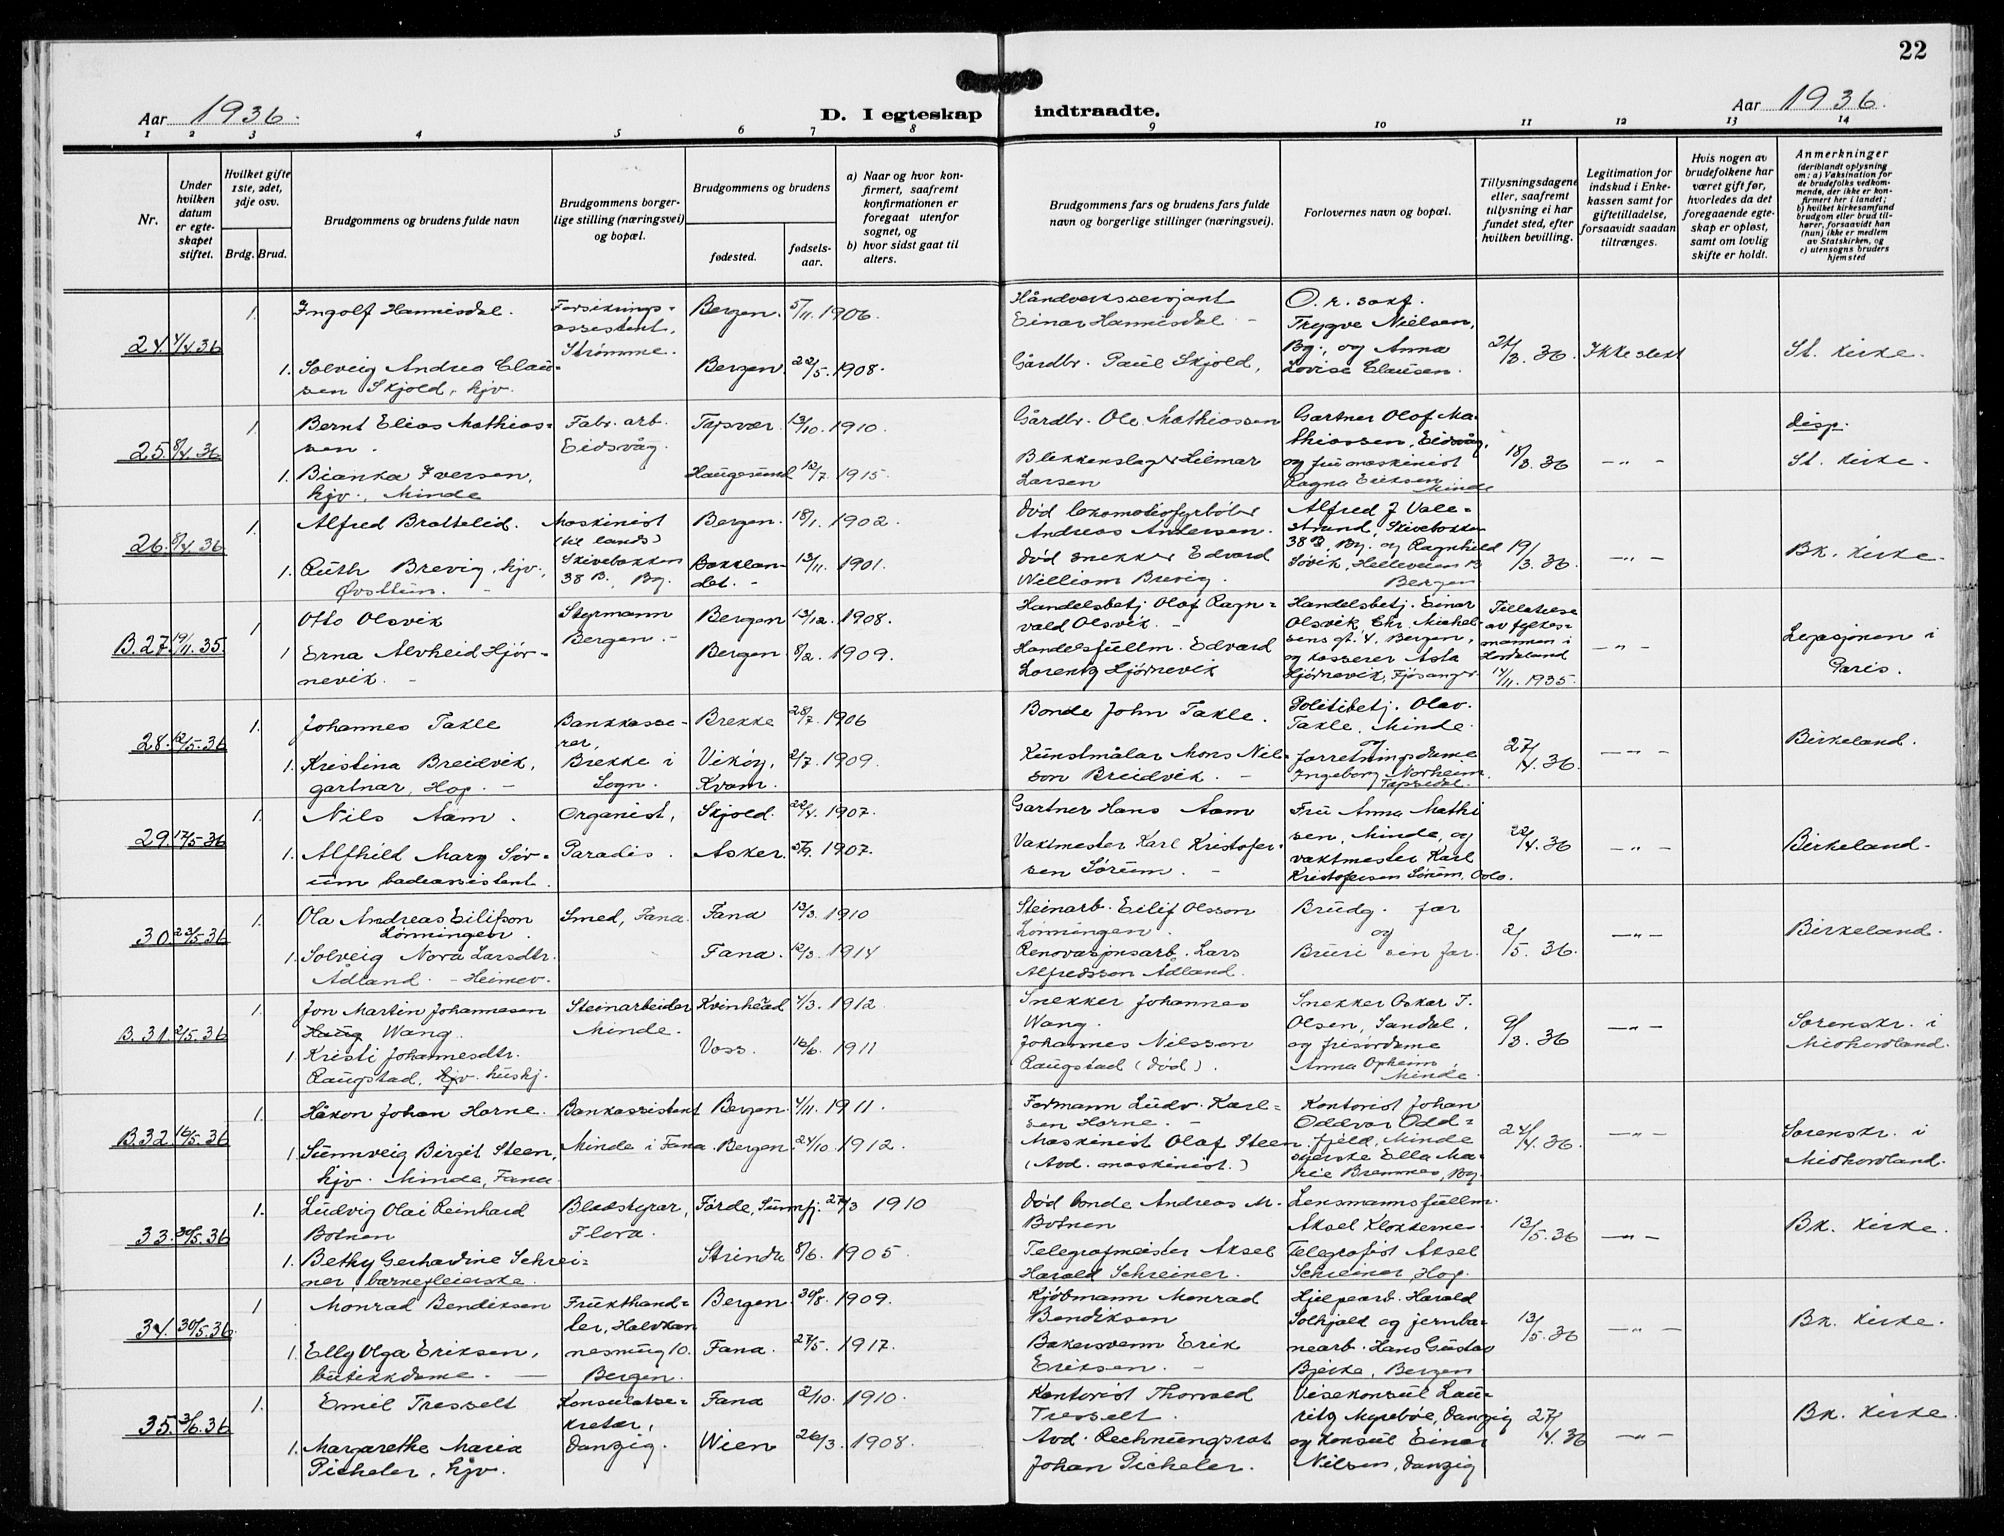 22
Aar 1936.
D. I egteskap indtraadte.
Aar 1936.
1 2 3 4 5 6 7 8 9 10 11 12 13 14
Nr.
Under hvilken datum er egteskapet stiftet.
Hvilket gifte 1ste, 2det, 3dje osv.
Brdg. Brud.
Brudgommens og brudens fulde navn
Brudgommens borgerlige stilling (næringsvei) og bopæl.
Brudgommens og brudens
fødested.
fødselsaar.
a) Naar og hvor konfirmert, saafremt konfirmationen er foregaat utenfor sognet, og
b) hvor sidst gaat til alters.
Brudgommens fars og brudens fars fulde navn og borgerlige stillinger (næringsvei).
Forlovernes navn og bopæl.
Tillysningsdagene eller, saafremt tillysning ei har fundet sted, efter hvilken bevilling.
Legitimation for indskud i Enkekassen samt for giftetilladelse, forsaavidt saadan tiltrænges.
Hvis nogen av brudefolkene har været gift før, hvorledes da det foregaaende egteskap er opløst, samt om lovlig skifte er holdt.
Anmerkninger
(deriblandt oplysning om: a) Vaksination for de brudefolks vedkommende, der ikke er konfirmert her i landet; b) hvilket kirkesamfund brudgom eller brud tilhører, forsaavidt han (hun) ikke er medlem av Statskirken, og c) utensogns bruders hjemsted
24. 4/4 36 1. Ingolf Hannisdal. Forsikringsassistent, Strømme. Bergen. 5/11. 1906. Håndverkssersjant Einar Hannisdal - O.r. sakf. Trygve Nielsen, Bg., og Anna Lovise Clausen. 24/3. 36. Ikke slekt St. kirke.
1. Solveig Andrea Clausen Skjold, hjv. Bergen. 22/5. 1908. Gårdbr. Paul Skjold,
25. 8/4. 36 1. Bernt Elias Mathiassen. Fabr. arb. Eidsvåg. Tysvær. 13/10. 1910. Gårdbr. Ole Mathiassen Gartner Olaf Mathiassen, Eidsvåg, og fru maskinist Ragna Eriksen Minde 18/3. 36 -"- disp. St. kirke.
1. Bianka Iversen, hjv., Minde Haugesund 12/7. 1915. Blikkenslager Hilmar Larsen
26. 8/4 36 1. Alfred Brattelid. Maskinist (til lands) Skivebakken 38 B., Bg. Bergen. 18/1. 1902. død lokomotivfyrbøter Andreas Andersen. Alfred J Valestrand, Skivebakken 38 B, Bg. og Ragnhild Søvik, Helleveien Bergen 19/3. 36. -"- Bk. kirke.
1. Ruth Brevig, hjv., Øvsttun. Bakklandet. 13/11. 1901. død snekker Edvard William Brevig.
B.27 19/11. 35. 1 Otto Olsvik Styrmann Bergen. - Bergen 13/12. 1908. Handelsbetj. Olaf Ragnvald Olsvik. - Handelsbetj. Einar Olsvik Chr. Michelsens gt. 4. Bergen, og kasserer Asta Hjørnevik, Fjøsanger Tillatelse av fylkesmannen i Hordaland 14/11. 1935. -"- Legasjonen i Paris.
1 Erna Alvheid Hjørnevik. - Bergen 8/2. 1909. Handelsfullm. Edvard Lorentz Hjørnevik
28. 12/5. 36 1. Johannes Takle Bankkasserer, Brekke i Sogn. Brekke 28/7. 1906 Bonde John Takle. Politibetj. Olav Takle, Minde. og forretningsdame Ingeborg Norheim 27/4. 36. -"- Birkeland.
1. Kristina Breidvik, gartnar, Hop. - Vikøy, Kvam. 2/7. 1909. Kunstmålar Mons Nilsson Breidvik. -
29. 17/5. 36 1. Nils Aam. Organist, Paradis. Skjold. 22/4. 1907. Gartner Hans Aam Fru Anna Mathisen, Minde, og vaktmester Karl Kristofersen Sørum, Oslo. 22/4. 36 -"- Birkeland.
1. Alfhild Mary Sørum badeassistent. Asker. 5/9. 1907. Vaktmester Karl Kristofersen Sørum. -
30. 23/5. 36 1. Ola Andreas Eilifson Lønningen. Smed, Fana. Fana 13/3. 1910 Steinarb. Eilif Olsson Lønningen. Brudg. far og 2/5. 36. -"- Birkeland.
1. Solveig Nora Larsdtr. Ådland. - Heimev. Fana. 12/3. 1914 Renovasjonsarb. Lars Alfredsson Ådland. Bruri sin far.
B.31. 2/5. 36 1. Jon Martin Johannesen Haug Wang. Steinarbeider Minde. Kvinherad 4/3. 1912. Snekker Johannes Wang. Snekker Oskar T. Olsen, Sandal. og frisørdame Anna Opheim, Minde. 9/3. 36 -"- Sorenskr. i Midhordland.
1 Kristi Johannesdtr. Raugstad, hjv. hushj. Voss. 16/6. 1911 Johannes Nilsson Raugstad (død).
B.32. 16/5. 36 1. Håkon Johan Horne. Bankassistent Minde i Fana. Bergen. 4/11. 1911. Formann Ludv. Karlsen Horne. - Kontorist Johan Oddvar Oddfjeld, Minde Ella Marie Bremnes, Bg. 24/4. 36. -"- Sorenskr. i Midhordland.
1. Sunnveig Birgit Steen, hjv. Minde, Fana. Bergen. 24/10. 1912. Maskinist Olaf Steen (Avd. maskinist.)
33. 30/5. 36 1. Ludvig Olai Reinhard Botnen Bladstyrar, Flora. Førde, Sunnfj. 27/3 1910 død bonde Andreas M. Botnen Lensmannsfullm. Aksel Klokkernes 13/5. 36 -"- Bk. kirke.
1. Bethy Gerhardine Schreiner, barnepleierske. Strinda 8/6. 1905. Telegrafmeister Aksel Harald Schreiner. Telegrafist Aksel Schreiner, Hop.
34. 30/5. 36. 1 Monrad Bendiksen Frukthandler, Halvkannesmug 10. Bergen. Bergen. 30/8. 1909. Kjøbmann Monrad Bendiksen Hjelpearb. Harald Solhjold og jernbanearb. Hans Gustav Bjerke, Bergen. 13/5. 36 -"- Bk. kirke.
1. Elly Olga Eriksen, butikkdame. - Fana. 27/5. 1917. Bakersvenn Erik Eriksen. -
35. 3/6. 36 1. Emil Tresselt Konsulatsekretær, Danzig. Fana 2/10. 1910. Kontorist Thorvald Tresselt. Visekonsul Lauritz Myrebøe, Danzig og konsul Einar Nilsen, Danzig 27/4. 36 -"- Bk. kirke.
1. Margarethe Maria Picheler, hjv. Wien 26/3. 1908. Avd. Rechnungsrat Johan Picheler.